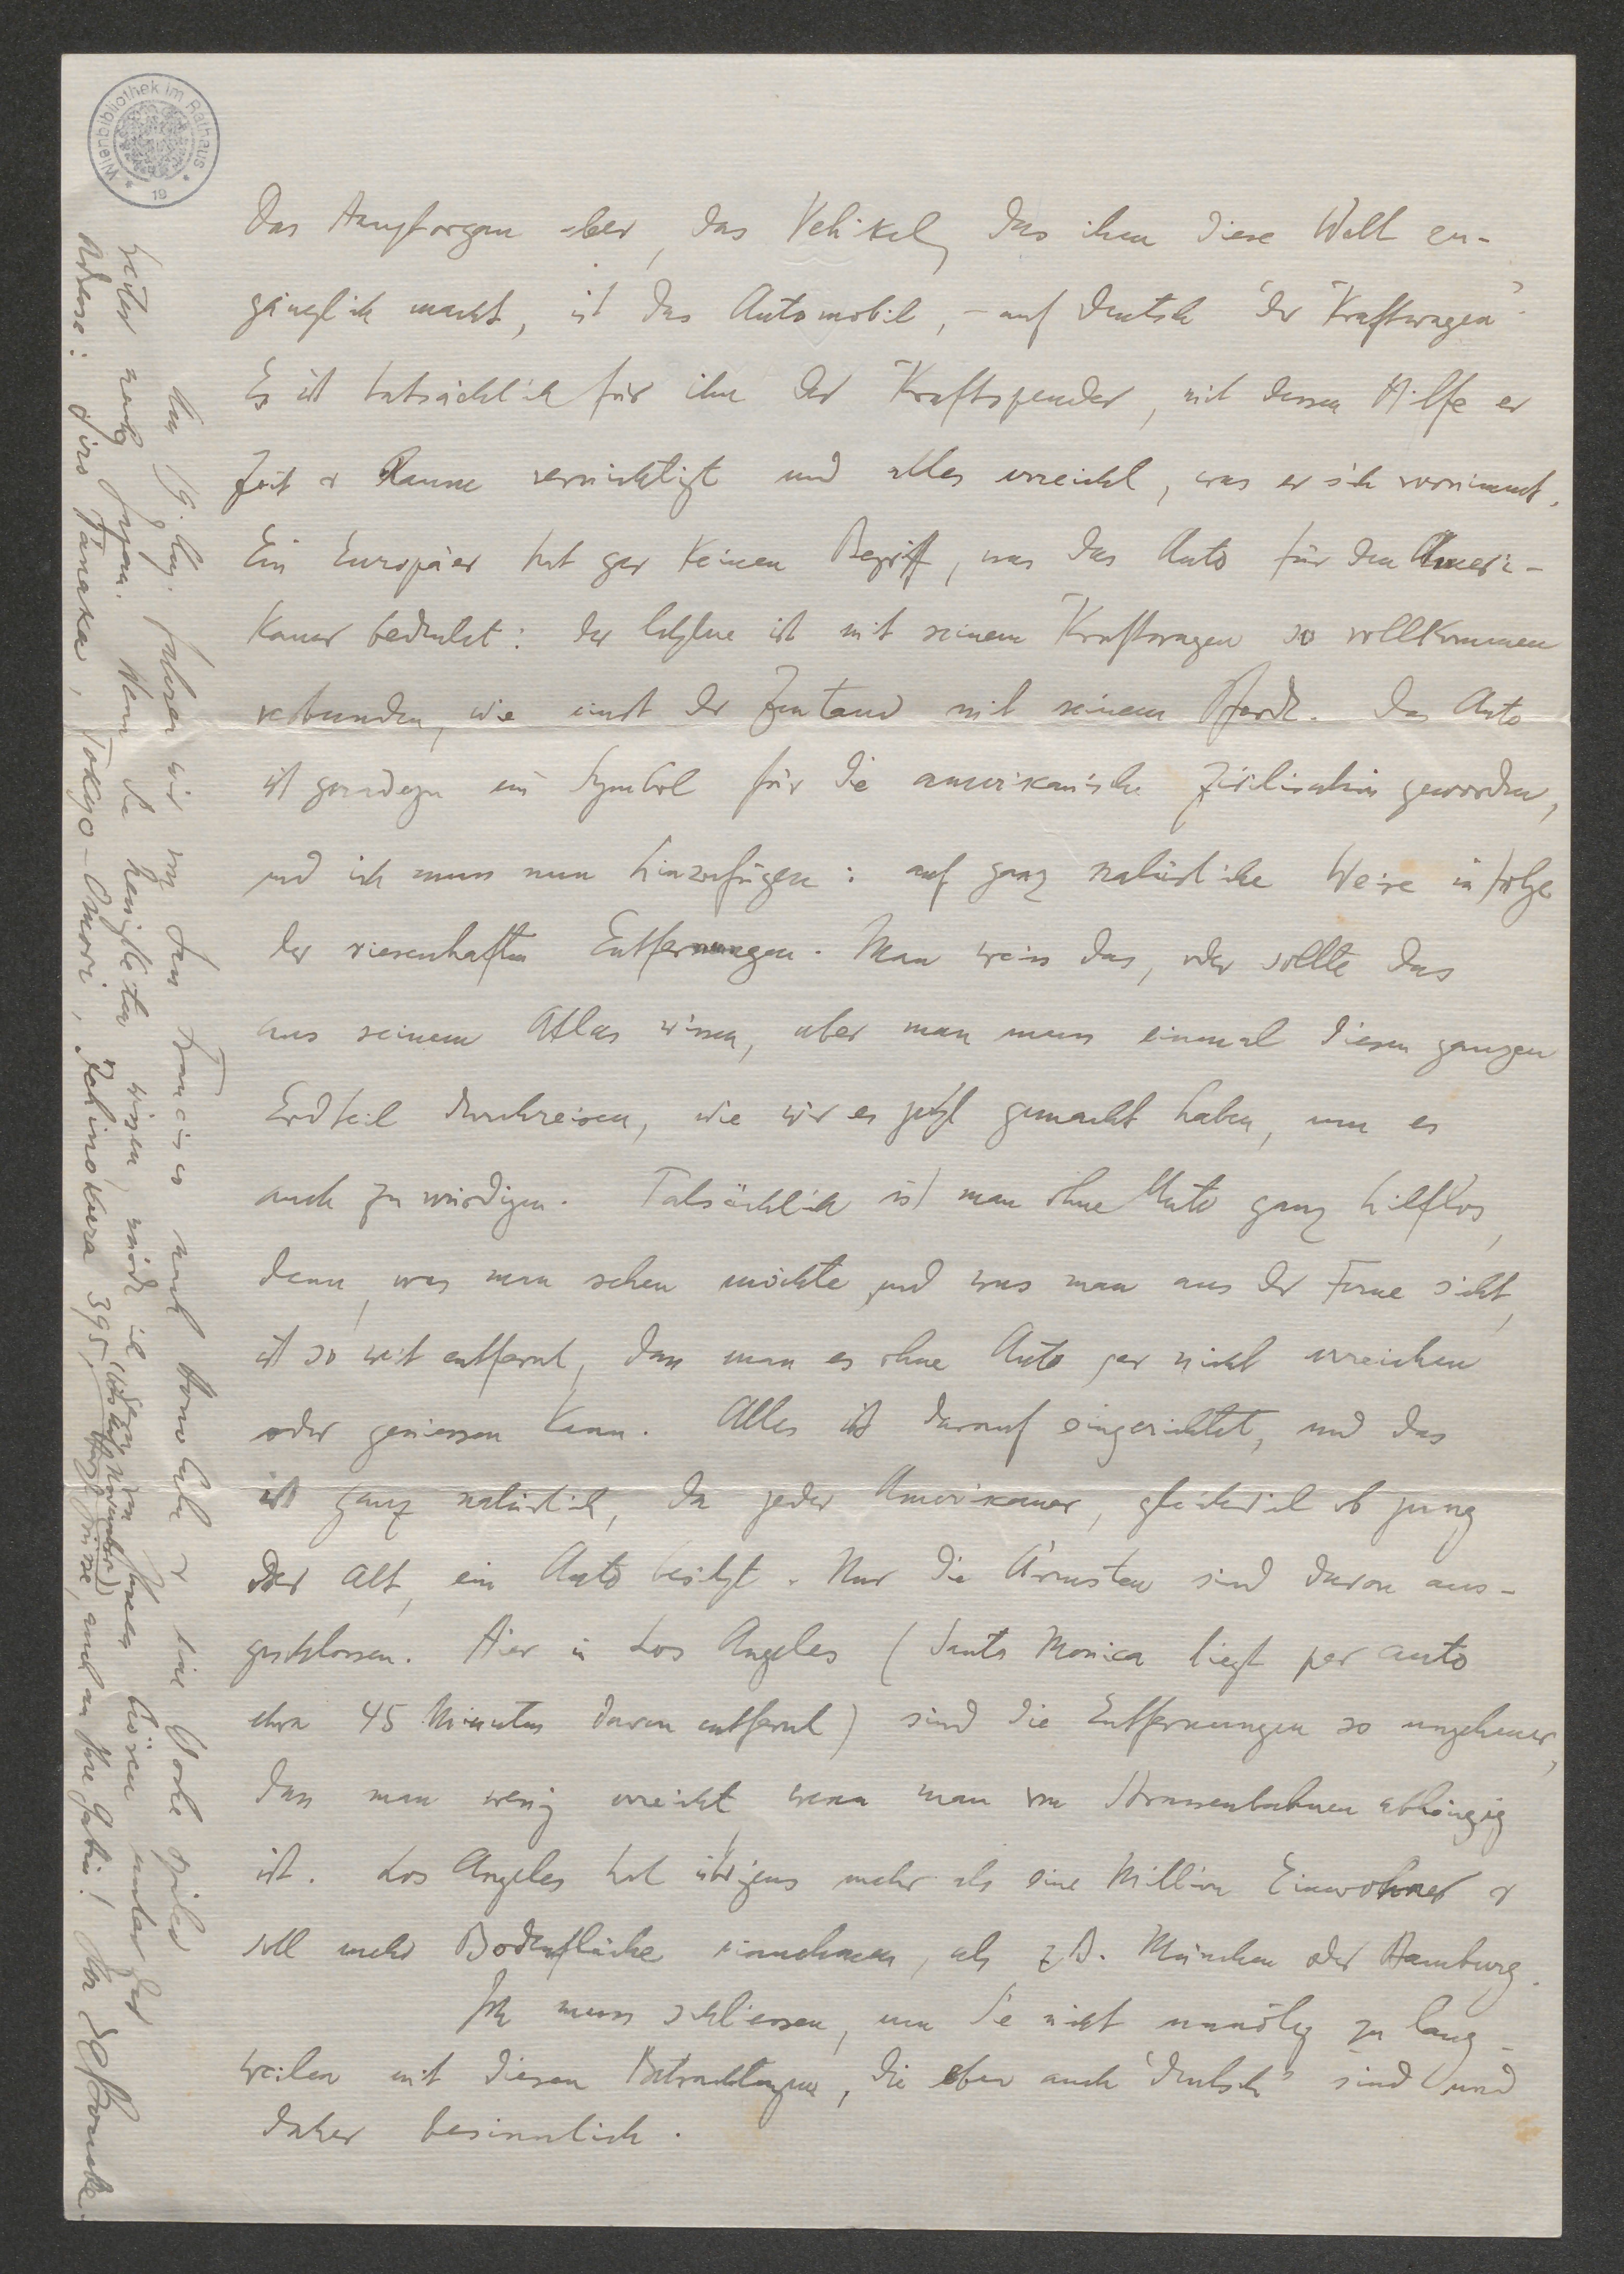 Wienbibliothek im Rathaus
19
Das Hauptorgan aber, das Vehikel, das ihm diese Welt zu-
gänglich macht, ist das Automobil, – auf deutsch "der Kraftwagen"
Es ist tatsächlich für ihn der Kraftspender, mit dessen Hilfe er
Zeit & Raum vernichtigt und alles erreicht, was er sich vornimmt.
Ein Europäer hat gar keinen Begriff, was das Auto für den Ameri-
kaner bedeutet: der letztere ist mit seinem Kraftwagen so vollkommen
verbunden, wie einst der Zentaur mit seinem Pferde. Das Auto
ist geradezu ein Symbol für die amerikanische Zivilisation geworden,
und ich muss nun hinzufügen: auf ganz natürliche Weise infolge
der riesenhaften Entfernungen. Man weiss das, oder sollte das
aus seinem Atlas wissen, aber man muss einmal diesen ganzen
Erdteil durchreisen, wie wir es jetzt gemacht haben, um es
auch zu würdigen. Tatsächlich ist man ohne Auto ganz hilflos,
denn, was man sehen möchte und was man aus der Ferne sieht,
ist so weit entfernt, dass man es ohne Auto gar nicht erreichen
oder geniessen kann. Alles ist darauf eingerichtet, und das
ist ganz natürlich, da jeder Amerikaner, gleichviel ob jung
oder alt, ein Auto besitzt. Nur die Ärmsten sind davon aus-
geschlossen. Hier in Los Angeles (Santa Monica liegt per auto
etwa 45 Minuten davon entfernt) sind die Entfernungen so ungeheuer,
dass man wenig erreicht wenn man von Strassenbahnen abhängig
ist. Los Angeles hat übrigens mehr als eine Million Einwohner &
soll mehr Bodenfläche einnehmen, als z.B. München oder Hamburg.
Ich muss schliessen, um Sie nicht unnötig zu lang-
weilen mit diesen Betrachtungen, die eben auch "deutsch" sind und
daher besinnlich.
Am 19. Aug. fahren wir von San Francisco nach Honolulu & eine Woche später
weiter nach Japan. Wenn Sie Neuigkeiten wissen, würde ich gern von Ihnen hören unter der
Adresse: Jiro Tanaka, Tokyo-Omori, 395, (bis Ende November)
Herzl. Grüsse, auch an Ihre Gattin! Ihr